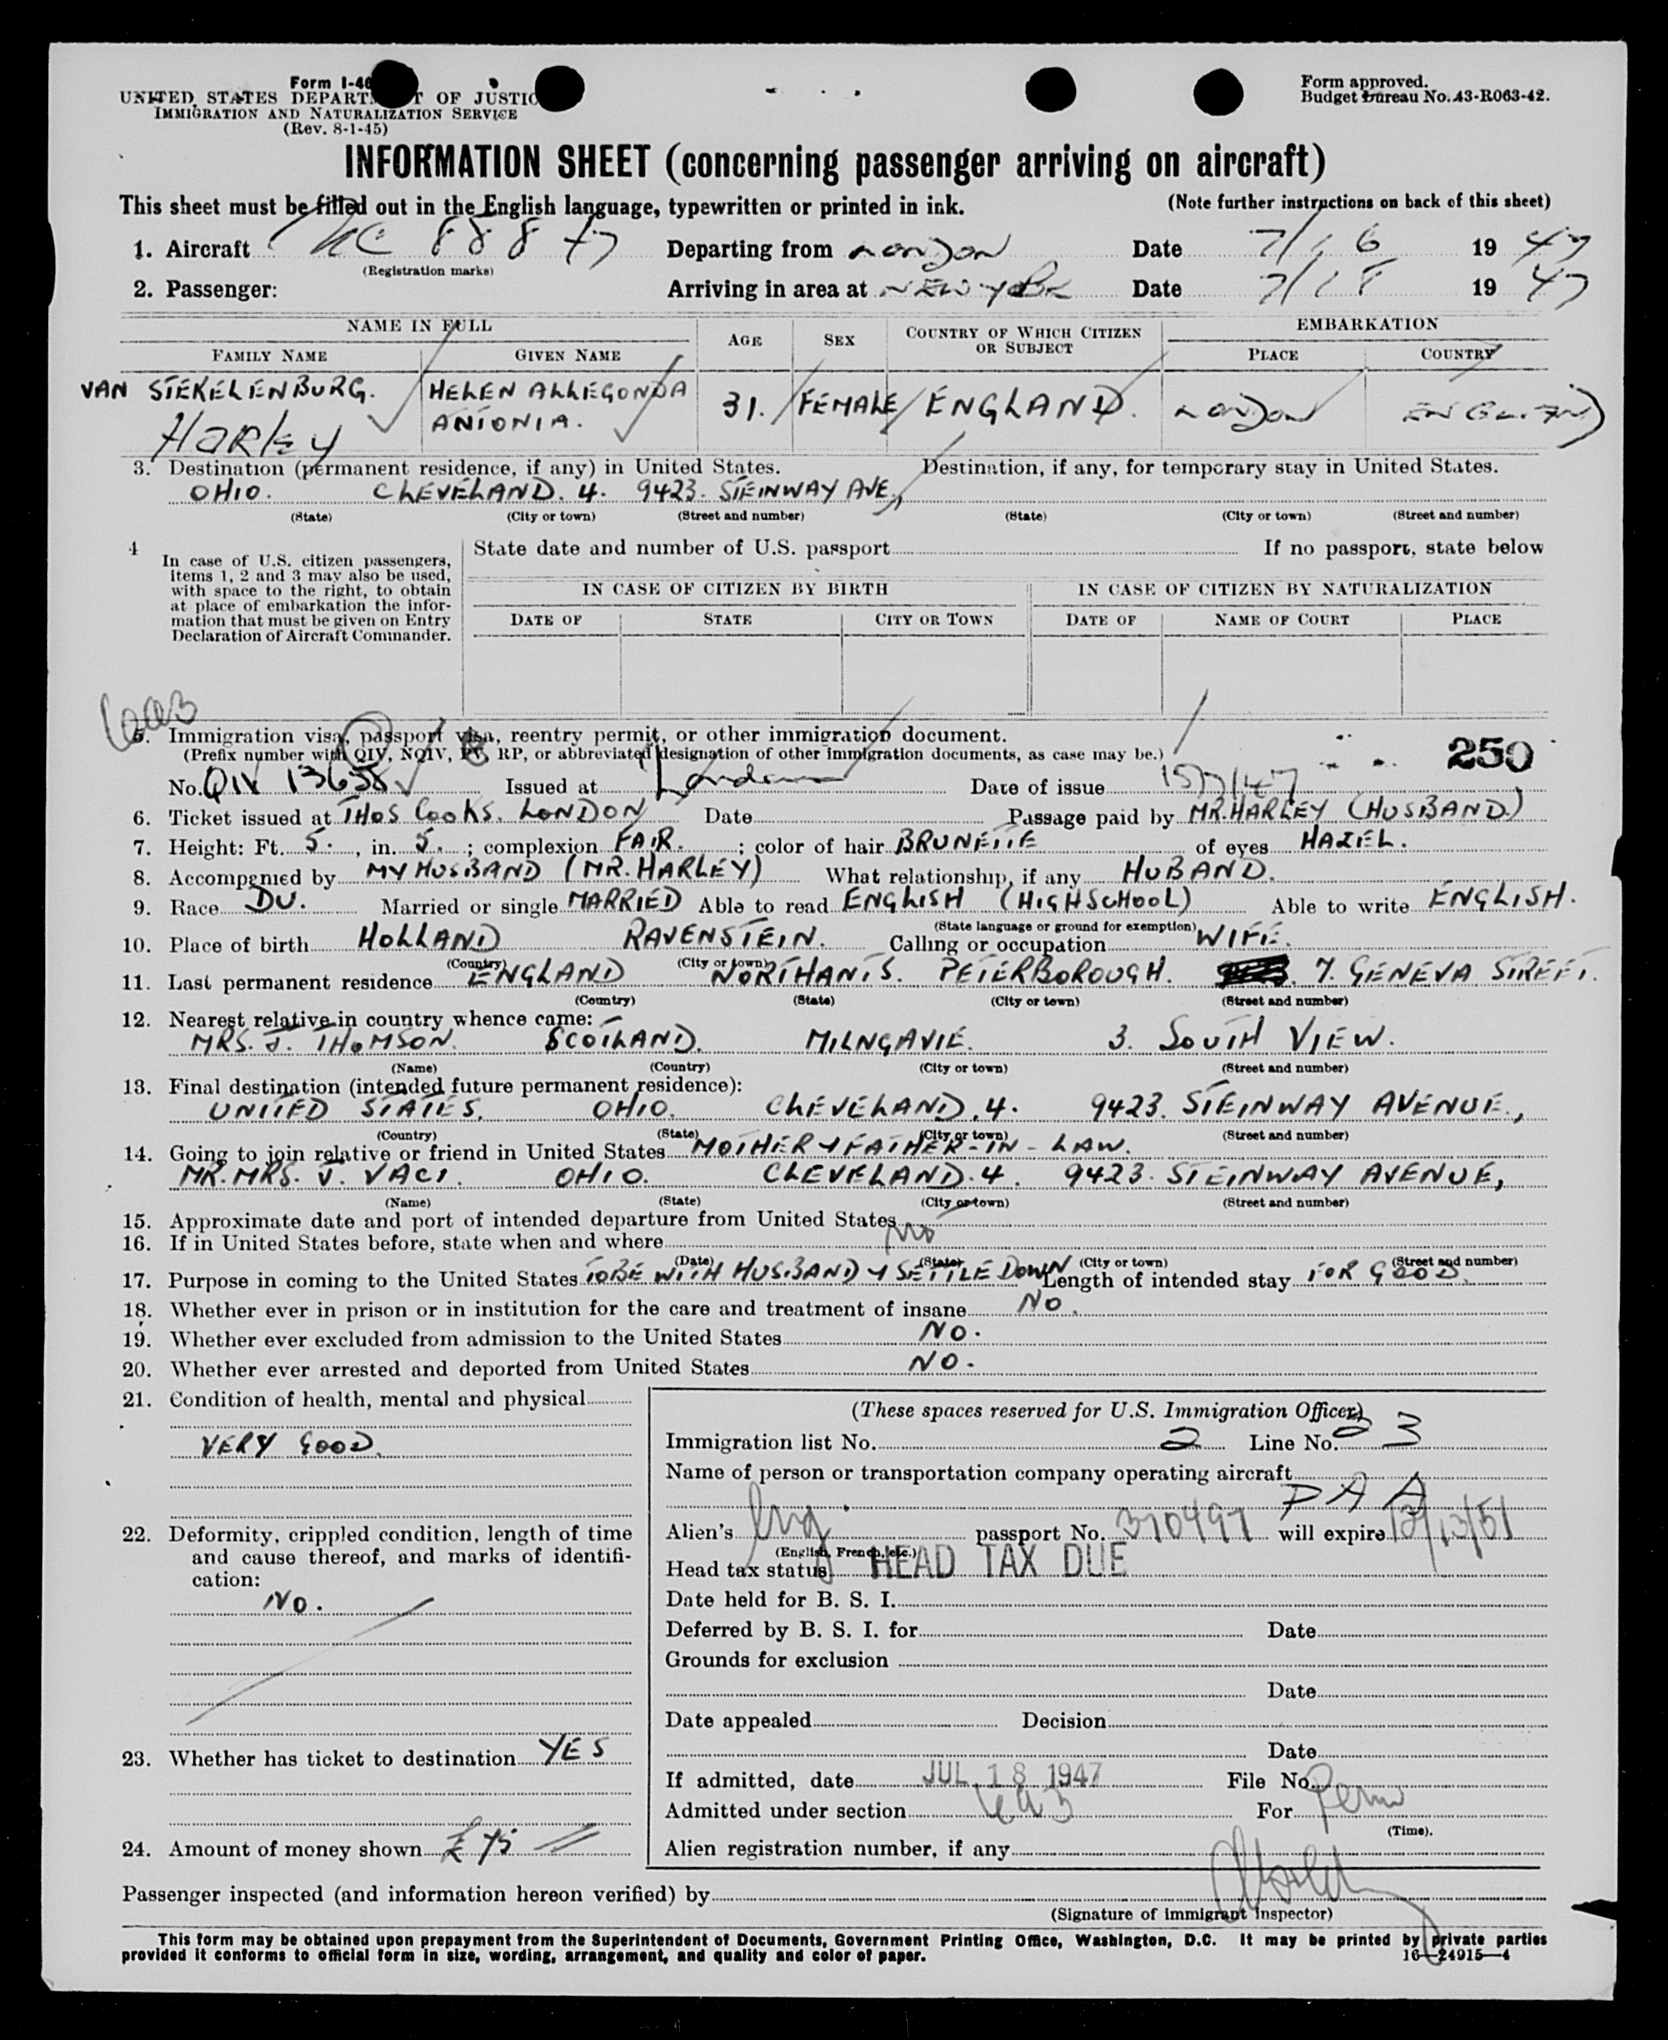 Form I-46
UNITED STATES DEPARTMENT OF JUSTICE
IMMIGRATION AND NATURALIZATION SERVICE
(Rev. 8-1-45)
Form approved.
Budget Bureau No. 43-R063-42.
INFORMATION SHEET (concerning passenger arriving on aircraft)
This sheet must be filled out in the English language, typewritten or printed in ink. (Note further instructions on back of this sheet)
1. Aircraft NC 88847 Departing from LONDON Date 7/16 1947
(Registration marks)
2. Passenger: Arriving in area at NEW YORK Date 7/18 1947
NAME IN FULL AGE SEX COUNTRY OF WHICH CITIZEN OR SUBJECT EMBARKATION
FAMILY NAME GIVEN NAME PLACE COUNTRY
VAN STEKELENBURG. HELEN ALLEGONDA ANTONIA. 31. FEMALE ENGLAND. LONDON ENGLAND
HARLEY
3. Destination (permanent residence, if any) in United States. Destination, if any, for temporary stay in United States.
OHIO. CLEVELAND. 4. 9423. STEINWAY AVE.,
(State) (City or town) (Street and number) (State) (City or town) (Street and number)
4 In case of U.S. citizen passengers, items 1, 2 and 3 may also be used, with space to the right, to obtain at place of embarkation the information that must be given on Entry Declaration of Aircraft Commander.
State date and number of U.S. passport If no passport, state below
IN CASE OF CITIZEN BY BIRTH IN CASE OF CITIZEN BY NATURALIZATION
DATE OF STATE CITY OR TOWN DATE OF NAME OF COURT PLACE
6a3
5. Immigration visa, passport visa, reentry permit, or other immigration document.
(Prefix number with QIV, NQIV, PV, RP, or abbreviated designation of other immigration documents, as case may be.)
250
No. QIV 13658 Issued at London Date of issue 15/7/47
6. Ticket issued at THOS COOKS. LONDON Date Passage paid by MR. HARLEY (HUSBAND)
7. Height: Ft. 5. , in. 5. ; complexion FAIR. ; color of hair BRUNETTE of eyes HAZEL.
8. Accompanied by MY HUSBAND (MR. HARLEY) What relationship, if any HUBAND.
9. Race DU. Married or single MARRIED Able to read ENGLISH (HIGHSCHOOL) Able to write ENGLISH.
(State language or ground for exemption)
10. Place of birth HOLLAND RAVENSTEIN. Calling or occupation WIFE.
(Country) (City or town)
11. Last permanent residence ENGLAND NORTHANTS. PETERBOROUGH. 7. GENEVA STREET.
(Country) (State) (City or town) (Street and number)
12. Nearest relative in country whence came:
MRS. J. THOMSON. SCOTLAND. MILNGAVIE. 3. SOUTH VIEW.
(Name) (Country) (City or town) (Street and number)
13. Final destination (intended future permanent residence):
UNITED STATES. OHIO. CLEVELAND. 4. 9423. STEINWAY AVENUE.,
(Country) (State) (City or town) (Street and number)
14. Going to join relative or friend in United States MOTHER & FATHER-IN-LAW.
MR. MRS. J. VACI. OHIO. CLEVELAND. 4. 9423. STEINWAY AVENUE,
(Name) (State) (City or town) (Street and number)
15. Approximate date and port of intended departure from United States
16. If in United States before, state when and where NO
(Date) (State) (City or town) (Street and number)
17. Purpose in coming to the United States TO BE WITH HUSBAND & SETTLE DOWN Length of intended stay FOR GOOD.
18. Whether ever in prison or in institution for the care and treatment of insane NO.
19. Whether ever excluded from admission to the United States NO.
20. Whether ever arrested and deported from United States NO.
21. Condition of health, mental and physical
VERY GOOD.
22. Deformity, crippled condition, length of time and cause thereof, and marks of identification:
NO.
23. Whether has ticket to destination YES
24. Amount of money shown £ 75
(These spaces reserved for U.S. Immigration Officer)
Immigration list No. 2 Line No. 3
Name of person or transportation company operating aircraft
PAA
Alien's Eng passport No. 370497 will expire 12/13/51
(English, French, etc.)
Head tax status HEAD TAX DUE
Date held for B. S. I.
Deferred by B. S. I. for Date
Grounds for exclusion
Date
Date appealed Decision
Date
If admitted, date JUL 18 1947 File No.
Admitted under section 6a3 For Perm
(Time).
Alien registration number, if any
Passenger inspected (and information hereon verified) by
(Signature of immigrant inspector)
This form may be obtained upon prepayment from the Superintendent of Documents, Government Printing Office, Washington, D.C. It may be printed by private parties
provided it conforms to official form in size, wording, arrangement, and quality and color of paper. 16—24915-4